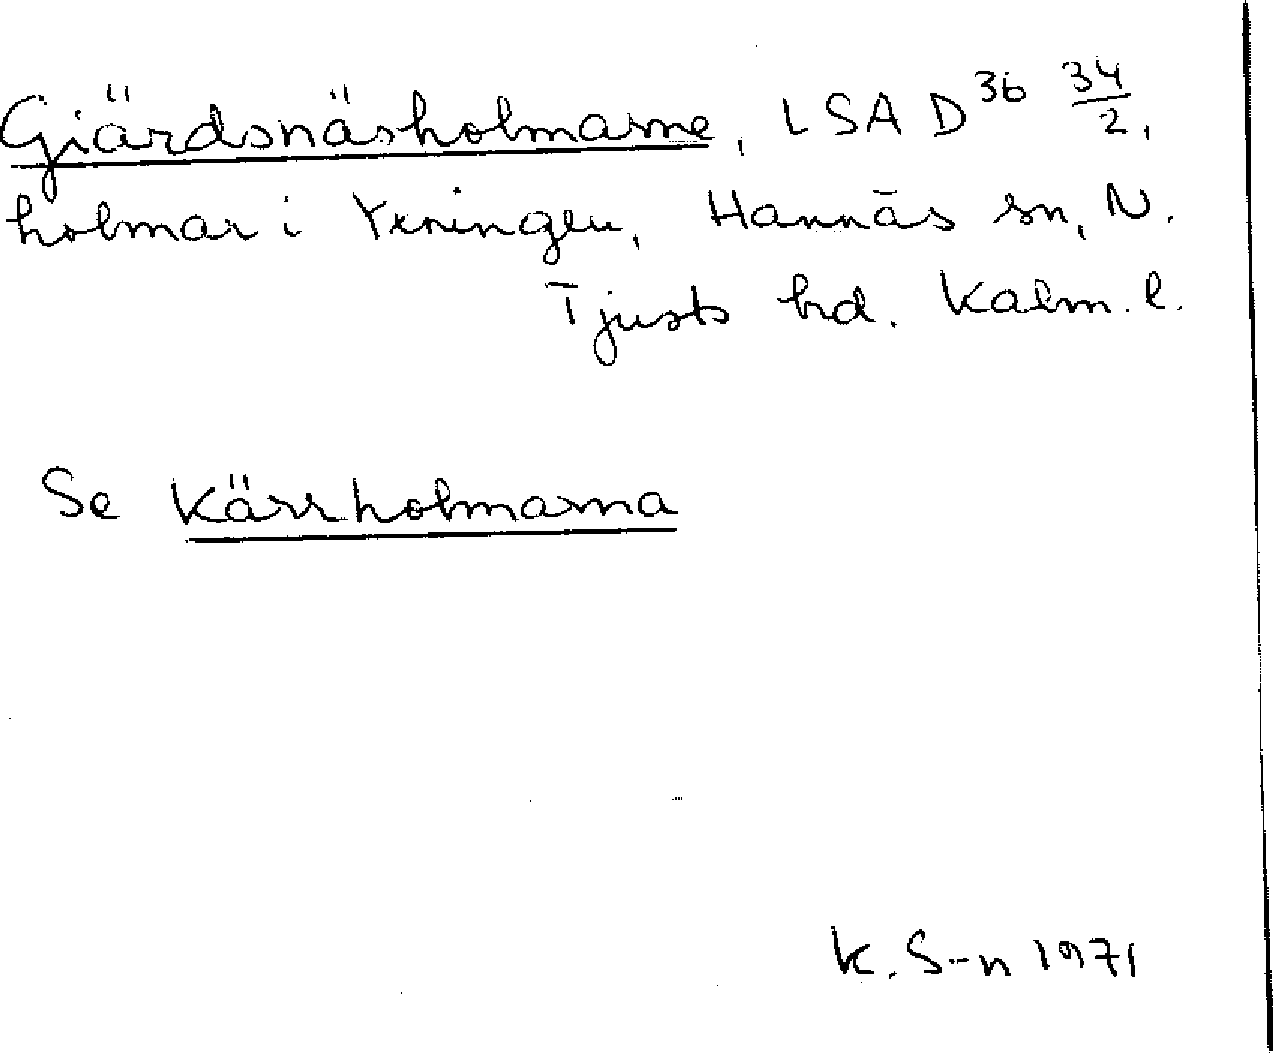 Giärdsnäsholmarne, LSA D³⁶ 34/2,
holmar i Yxningen, Hannäs sn, N.
Tjusts hd. Kalm. l.
Se Kärrholmarna
K. S-n 1971